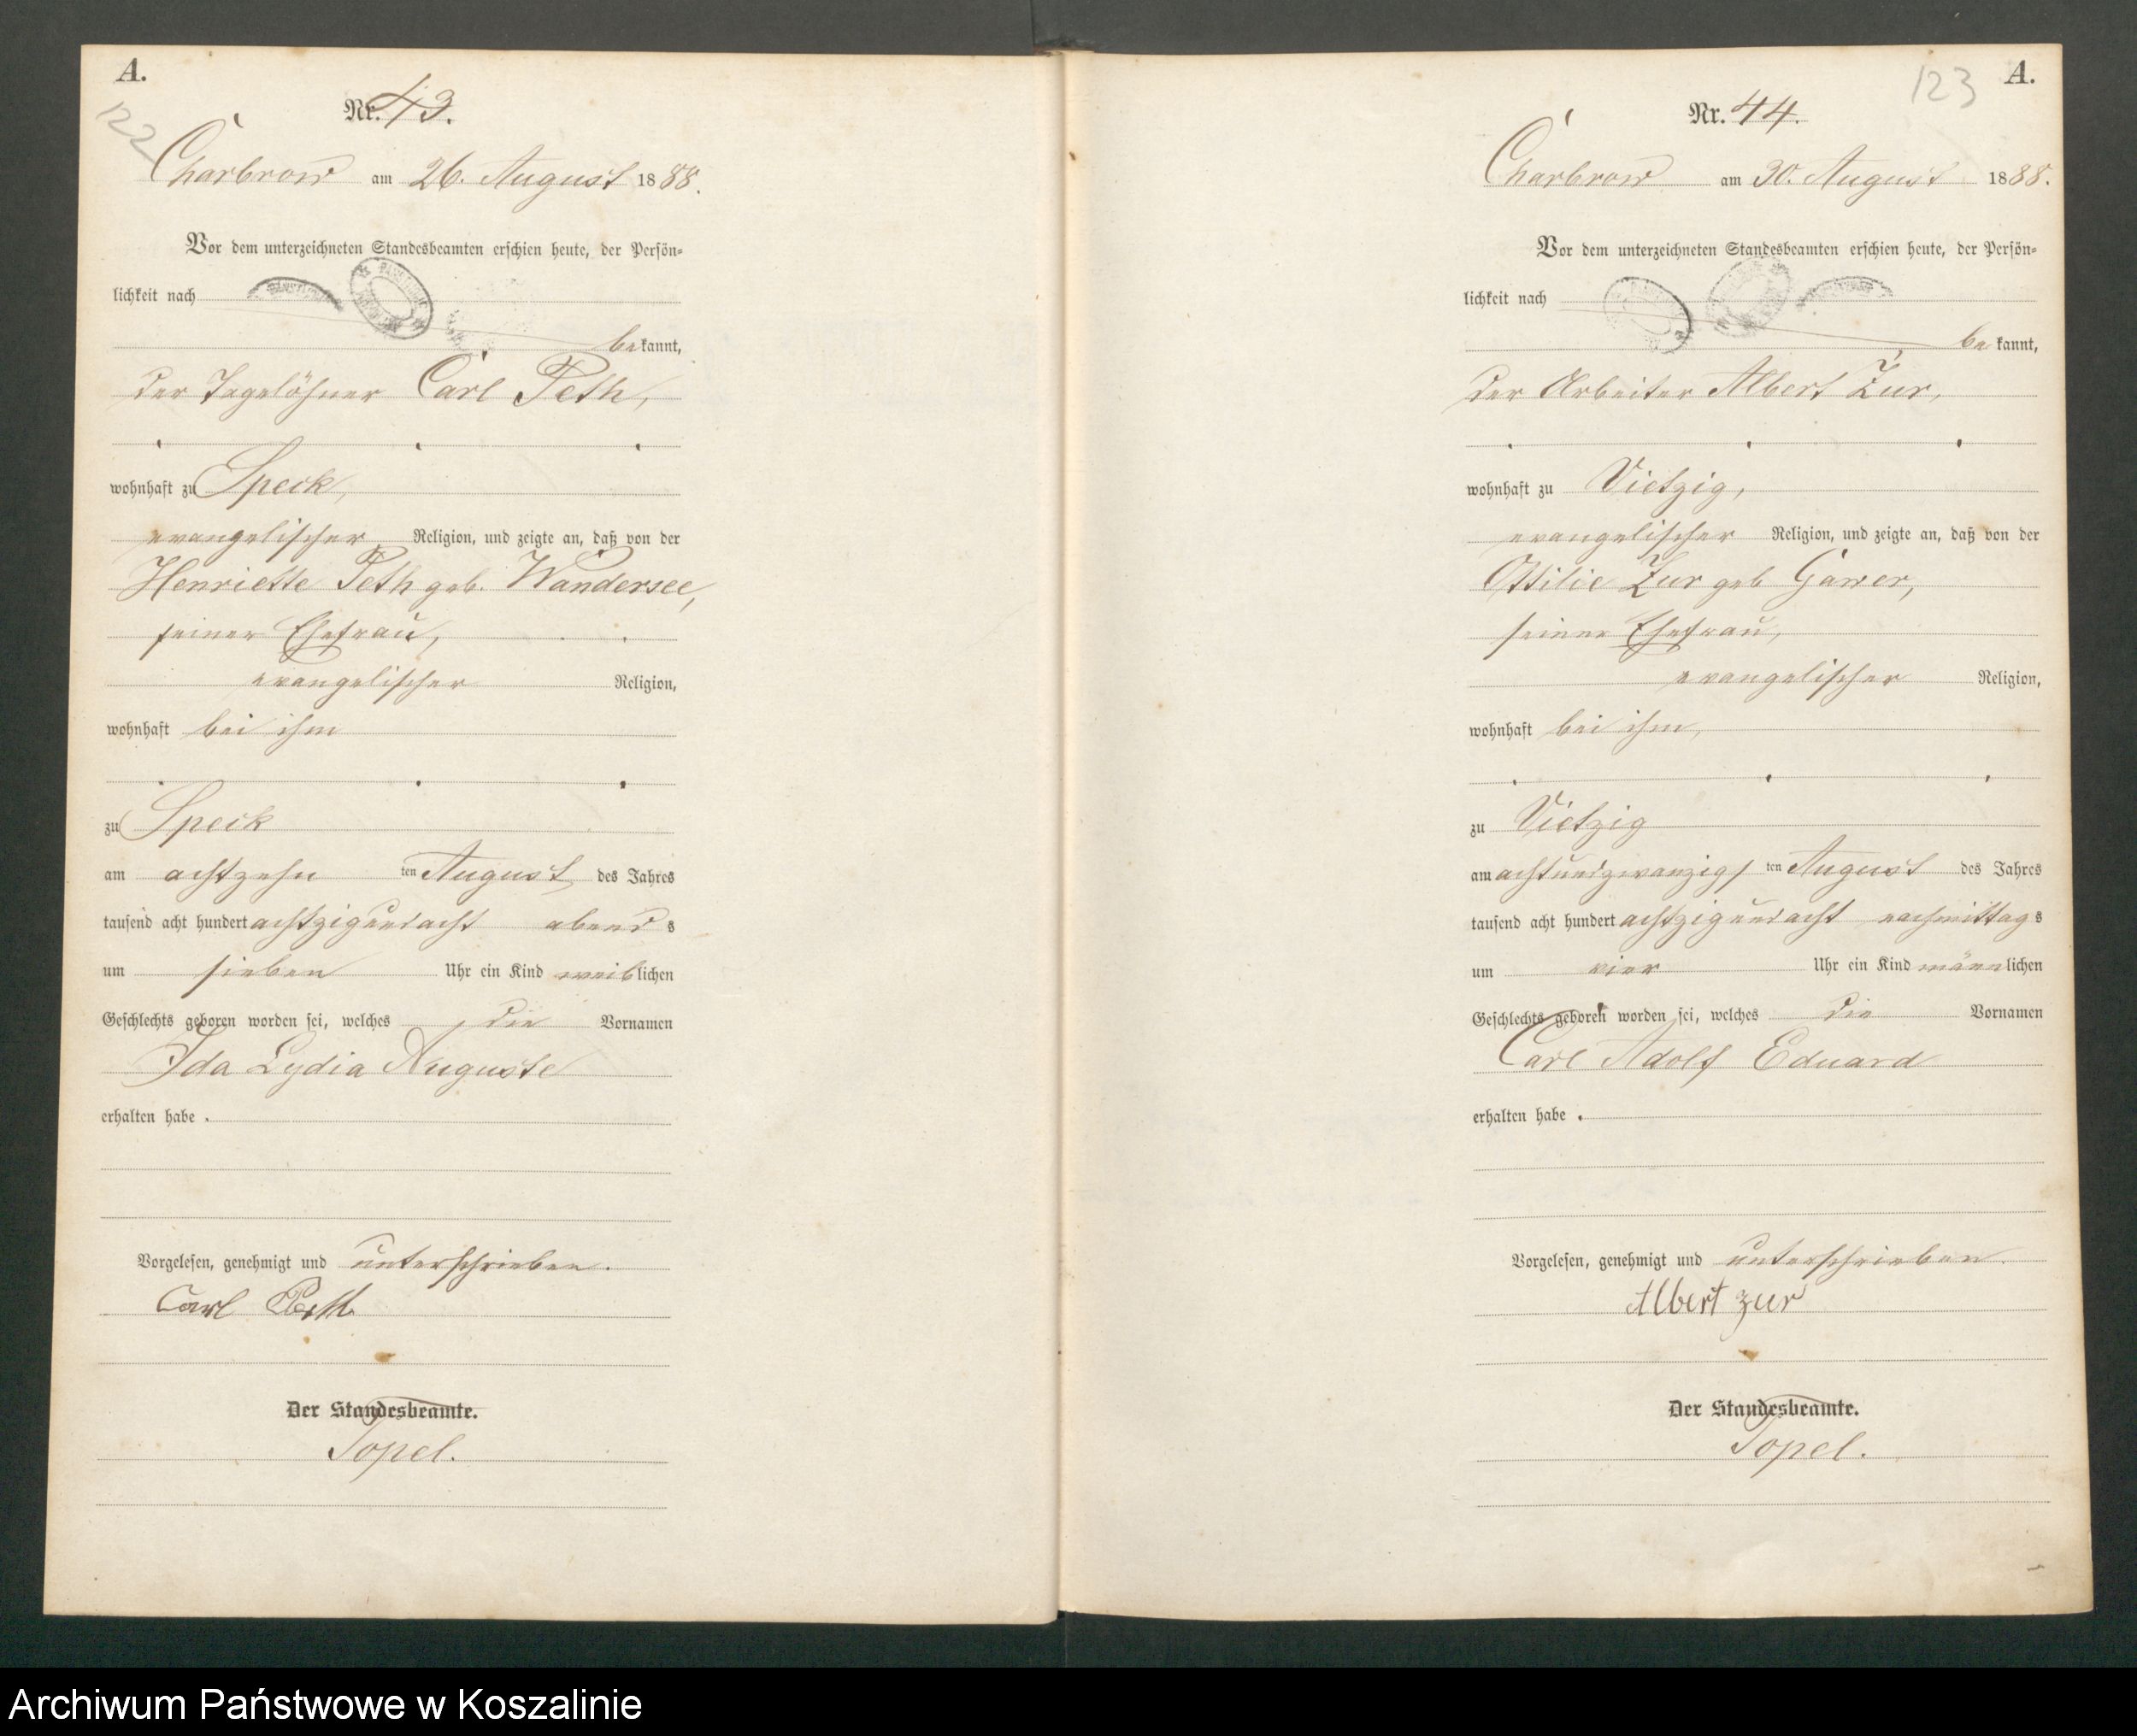 A.
122
Nr. 43.
Charbrow am 26. August 1888.
Vor dem unterzeichneten Standesbeamten erschien heute, der Persön-
lichkeit nach
bekannt,
der Tagelöhner Carl Peth,
wohnhaft zu Speck,
evangelischer Religion, und zeigte an, daß von der
Henriette Peth geb. Wandersee,
seiner Ehefrau,
evangelischer Religion,
wohnhaft bei ihm
zu Speck
am achtzehn ten August des Jahres
tausend acht hundert achtzigundacht abends
um sieben Uhr ein Kind weiblichen
Geschlechts geboren worden sei, welches die Vornamen
Ida Lydia Auguste
erhalten habe.
Vorgelesen, genehmigt und unterschrieben.
Carl Peth
Der Standesbeamte.
Topel.
123
A.
Nr. 44.
Charbrow am 30. August 1888.
Vor dem unterzeichneten Standesbeamten erschien heute, der Persön-
lichkeit nach
bekannt,
der Arbeiter Albert Zur,
wohnhaft zu Vietzig,
evangelischer Religion, und zeigte an, daß von der
Ottilie Zur geb Gawer,
seiner Ehefrau,
evangelischer Religion,
wohnhaft bei ihm,
zu Vietzig
am achtundzwanzigsten August des Jahres
tausend acht hundert achtzigundacht nachmittags
um vier Uhr ein Kind männlichen
Geschlechts geboren worden sei, welches die Vornamen
Carl Adolf Eduard
erhalten habe.
Vorgelesen, genehmigt und unterschrieben.
Albert Zur
Der Standesbeamte.
Topel.
Archiwum Państwowe w Koszalinie